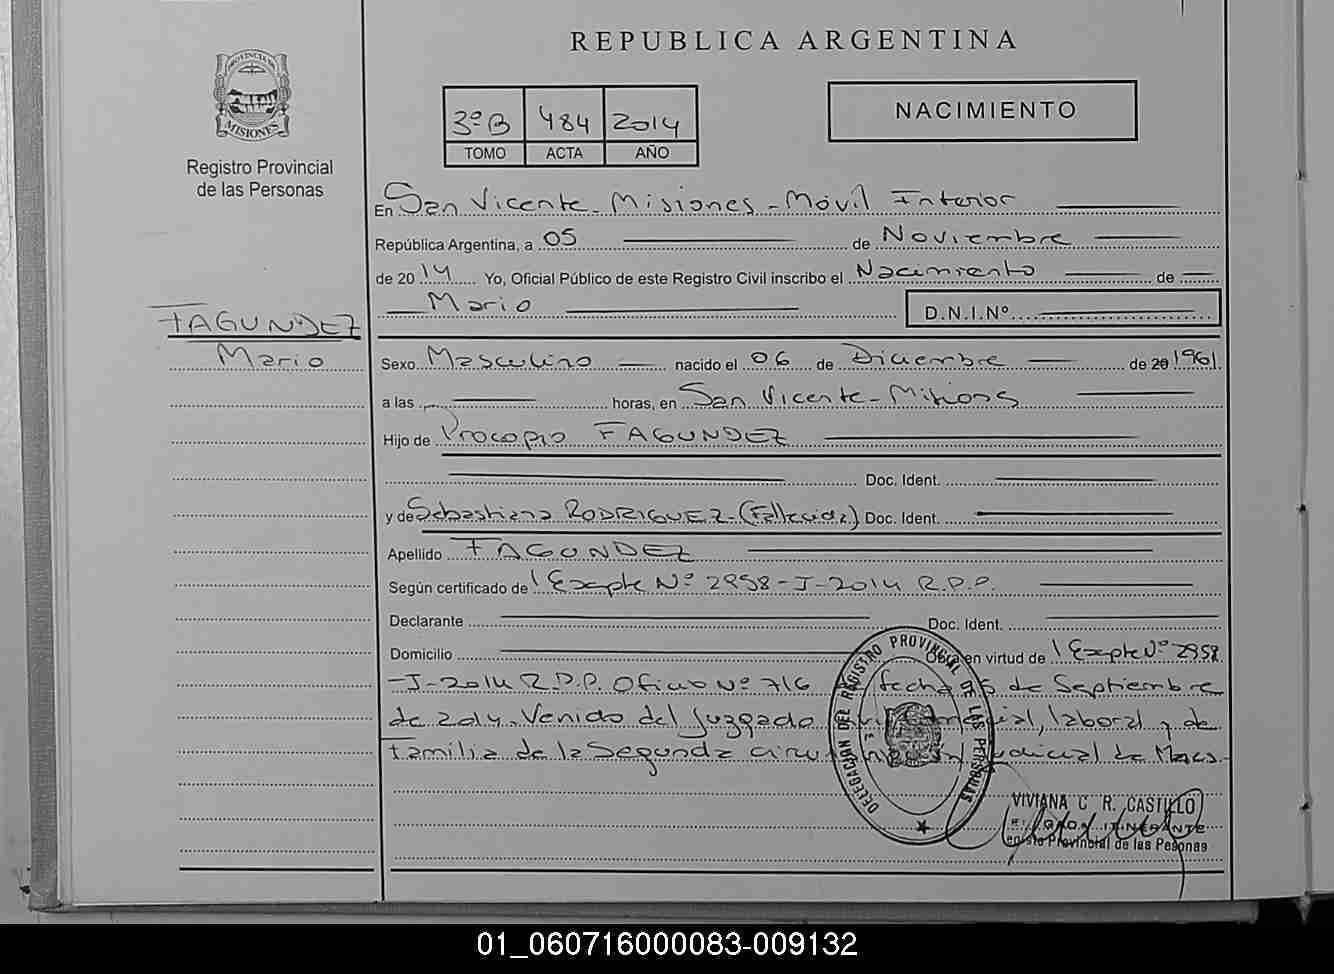 REPUBLICA ARGENTINA
PROVINCIA DE
MISIONES
Registro Provincial
de las Personas
3º B 484 2014
TOMO ACTA AÑO
NACIMIENTO
En San Vicente - Misiones - Móvil Interior
República Argentina, a 05 de Noviembre
de 2014 Yo, Oficial Público de este Registro Civil inscribo el Nacimiento de
Mario D.N.I.Nº
FAGUNDEZ
Mario
Sexo Masculino nacido el 06 de Diciembre de 20 1961
a las horas, en San Vicente - Misiones
Hijo de Procopio FAGUNDEZ
Doc. Ident.
y de Sebastiana RODRIGUEZ - (Fallecida) Doc. Ident.
Apellido FAGUNDEZ
Según certificado de Expte Nº 2958-J-2014 R.P.P.
Declarante Doc. Ident.
Domicilio Obra en virtud de Expte Nº 2958
-J-2014 R.P.P. Oficio Nº 716 fecha 5 de Septiembre
de 2014. Venido del Juzgado Civil, Comercial, laboral y de
familia de la Segunda Judicial de
DELEGACION DEL REGISTRO PROVINCIAL DE LAS PERSONAS
VIVIANA C R. CASTILLO
ITINERANTE
Provincial de las Pesonas
01_060716000083-009132